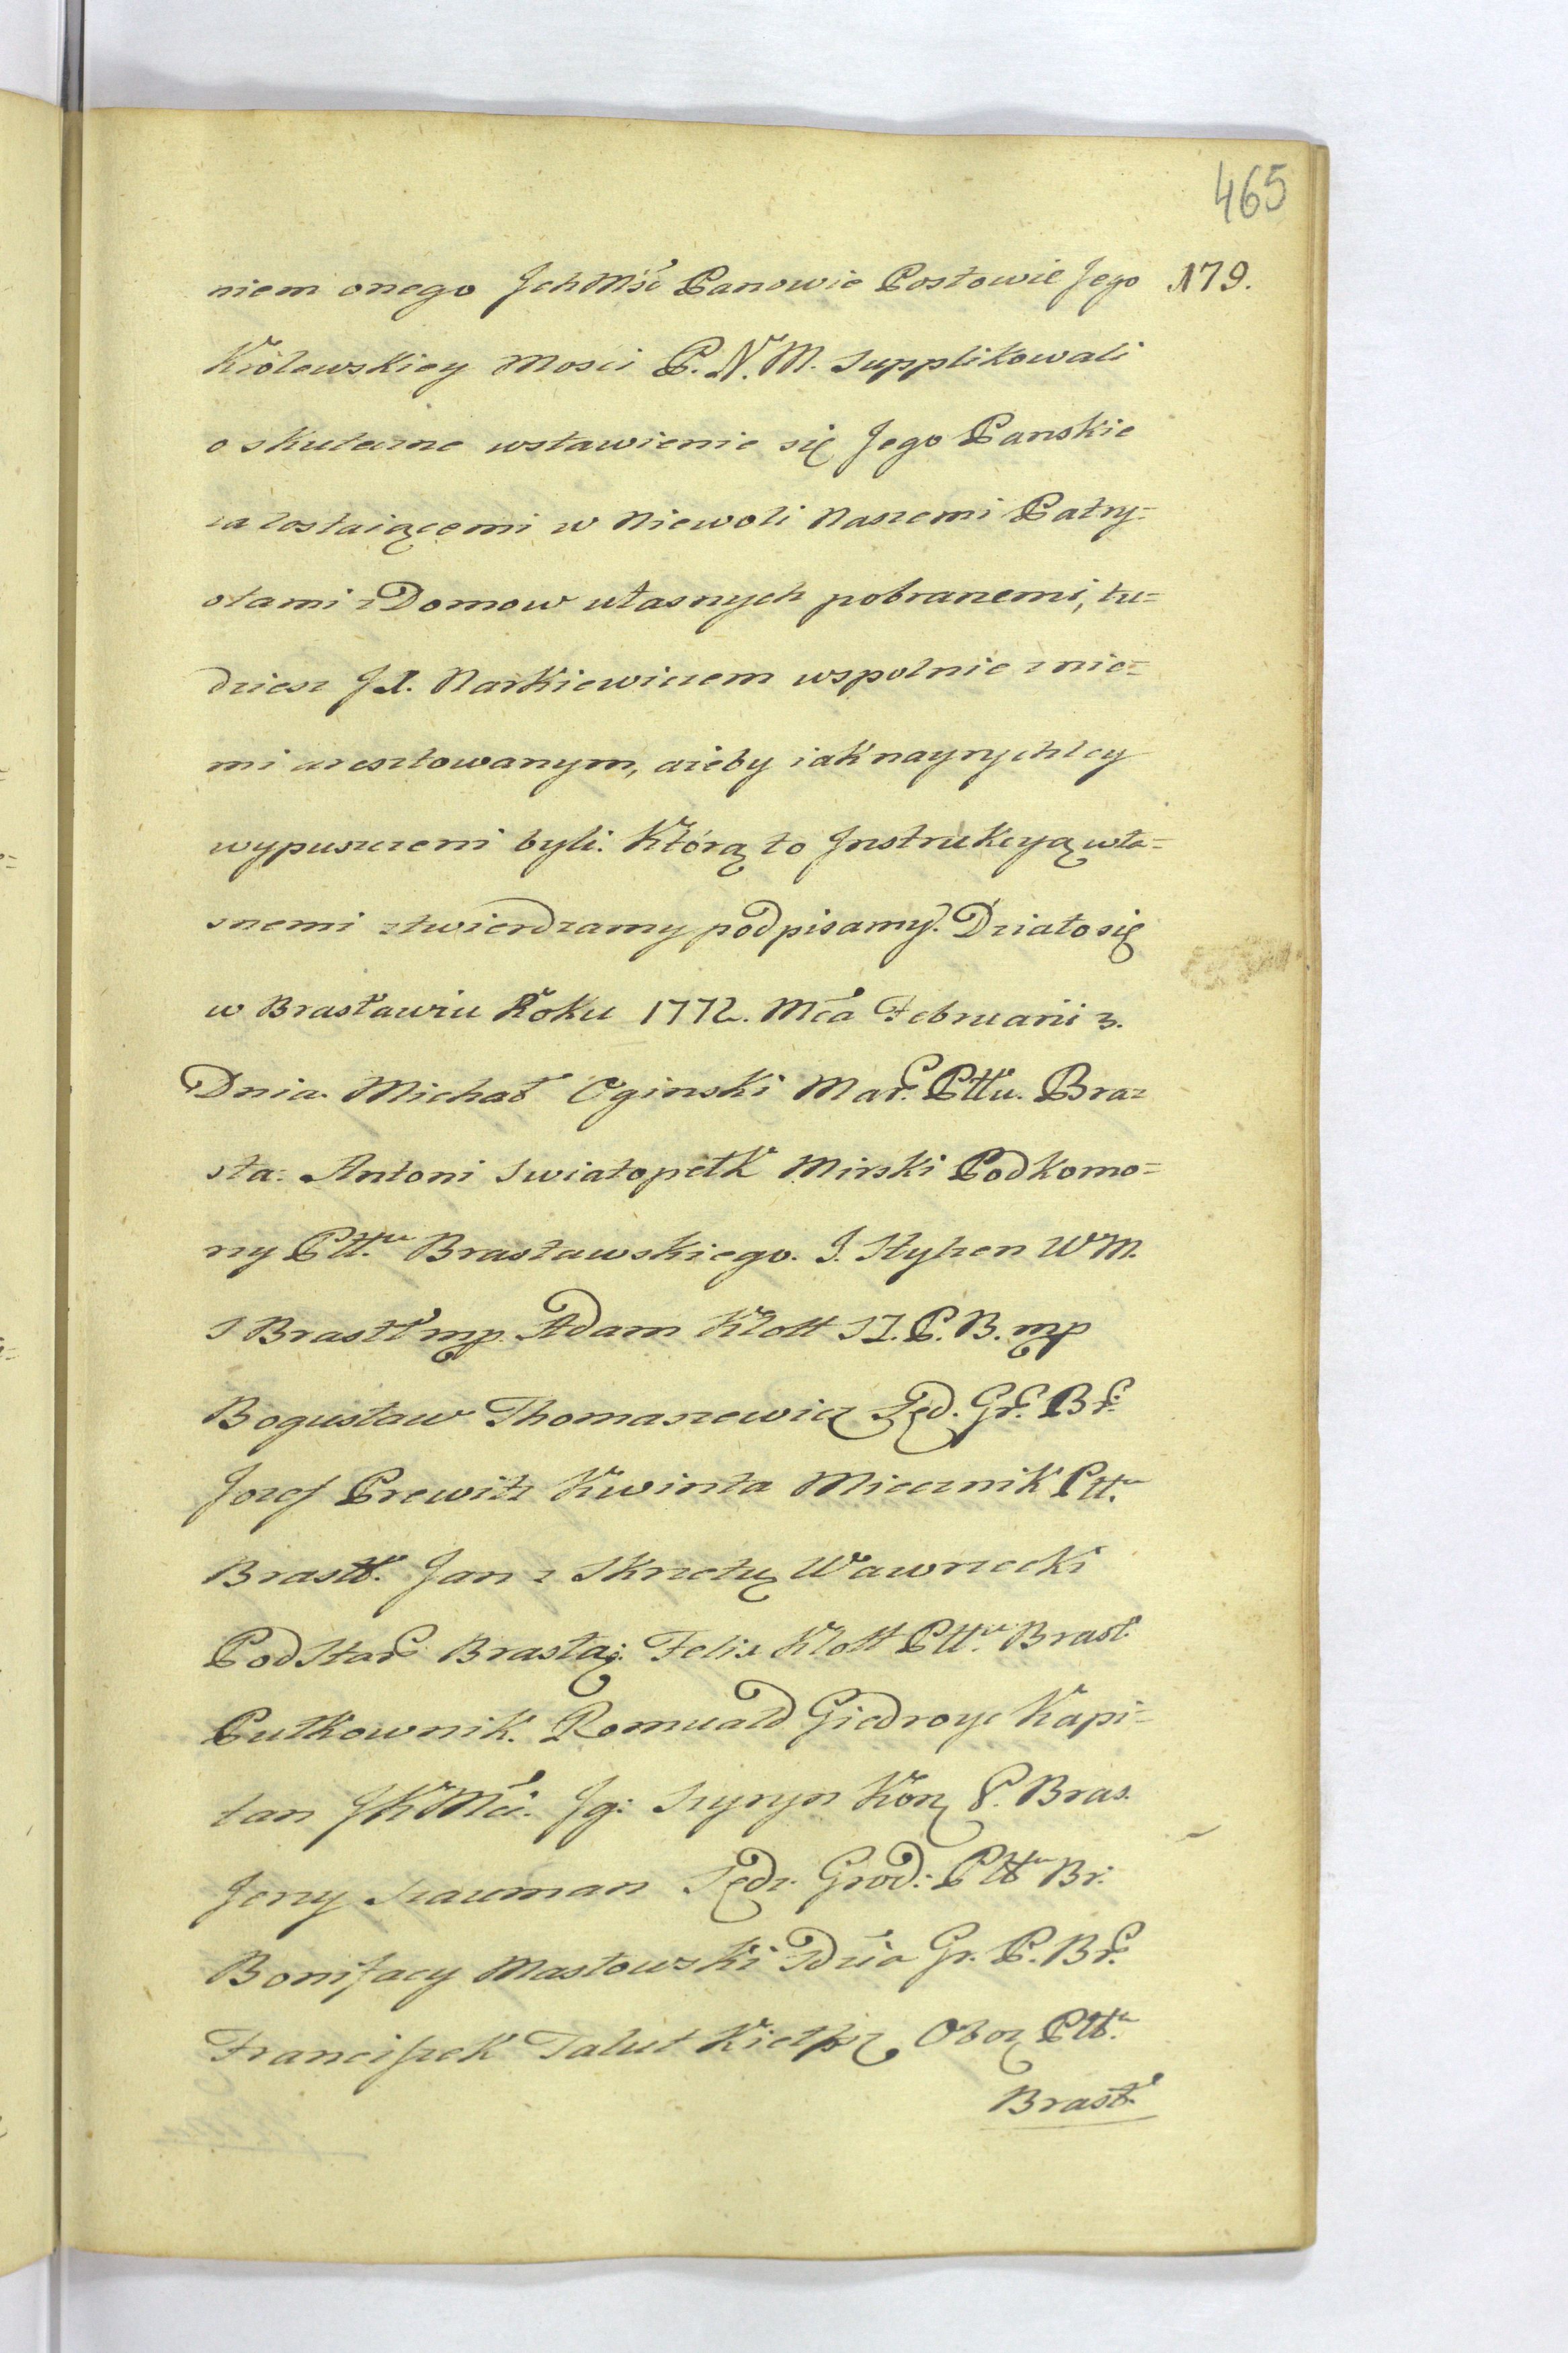 465
niem onego JchMść Panowie Posłowie Jego 179.
Krolewskiey Mosci P. N. M. supplikowali
o skuteczne wstawienie się Jego Panskie
za zostaiącemi w Niewoli Naszemi Patry=
otami z Domow własnych pobranemi, tu=
dziesz JX. Narkiewiczem wspolnie z nie=
mi aresztowanym, ażeby iak nayrychley
wypuszczeni byli. Którą to Jnstrukcyą wła=
snemi ztwierdzamy podpisamy. Działo się
w Brasławiu Roku 1772. Mca Februarii 3.
Dnia. Michał Oginski Mar. Pttu. Bra=
sła: Antoni Swiatopełk Mirski Podkomo=
rzy Pttu Brasławskiego. J. Hylzen W M.
S Brasł mp. Adam Klott S Z. P. B. mp
Bogusław Thomaszewicz Sęd. Gr. Br.
Jozef Prewitz Kwinta Miecznik Pttu
Brasł. Jan z Skrzetuz Wawrzecki
PodStar Brasła: Felix Klott Pttu Brasł.
Pułkownik. Romuald Giedroyc Kapi=
tan JKMci. Jg: Szyryn Kon P. Bras.
Jerzy Szauman Sędz. Grod: Pttu Br:
Bonifacy Masłowski Sdzia Gr. P. Br.
Franciszek Talut Kiełpsz Oboz Pttu
Brasł.